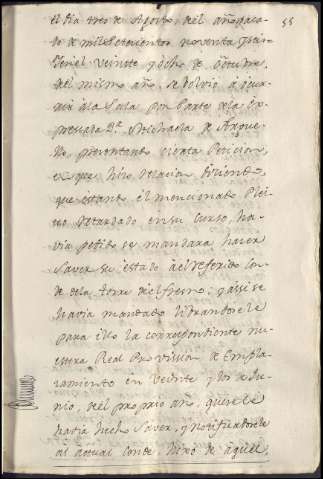 55
el dia tres de Agosto, del año pasa-
do de mil Setecientos noventa y seis
en el veinte y ocho de Octubre,
del mismo año, se volvió á
á la Sala por parte de la ex-
presada D.ª Michaela de Argue-
llo, presentando cierta Peticion,
en que hizo relacion diciendo,
que estando el mencionado Plei-
to retardado en su curso, ha-
via pedido se mandara hacer
Saver su estado al referido Con-
de de la torre del fresno; y assi se
havia mandado librandosele
para ello la correspondiente nu-
estra Real Provission de Empla-
zamiento en veinte y dos de Ju-
nio, del proprio año, que se le
havia hecho Saver, y notificadosele
al actual Conde, hixo de aquel,